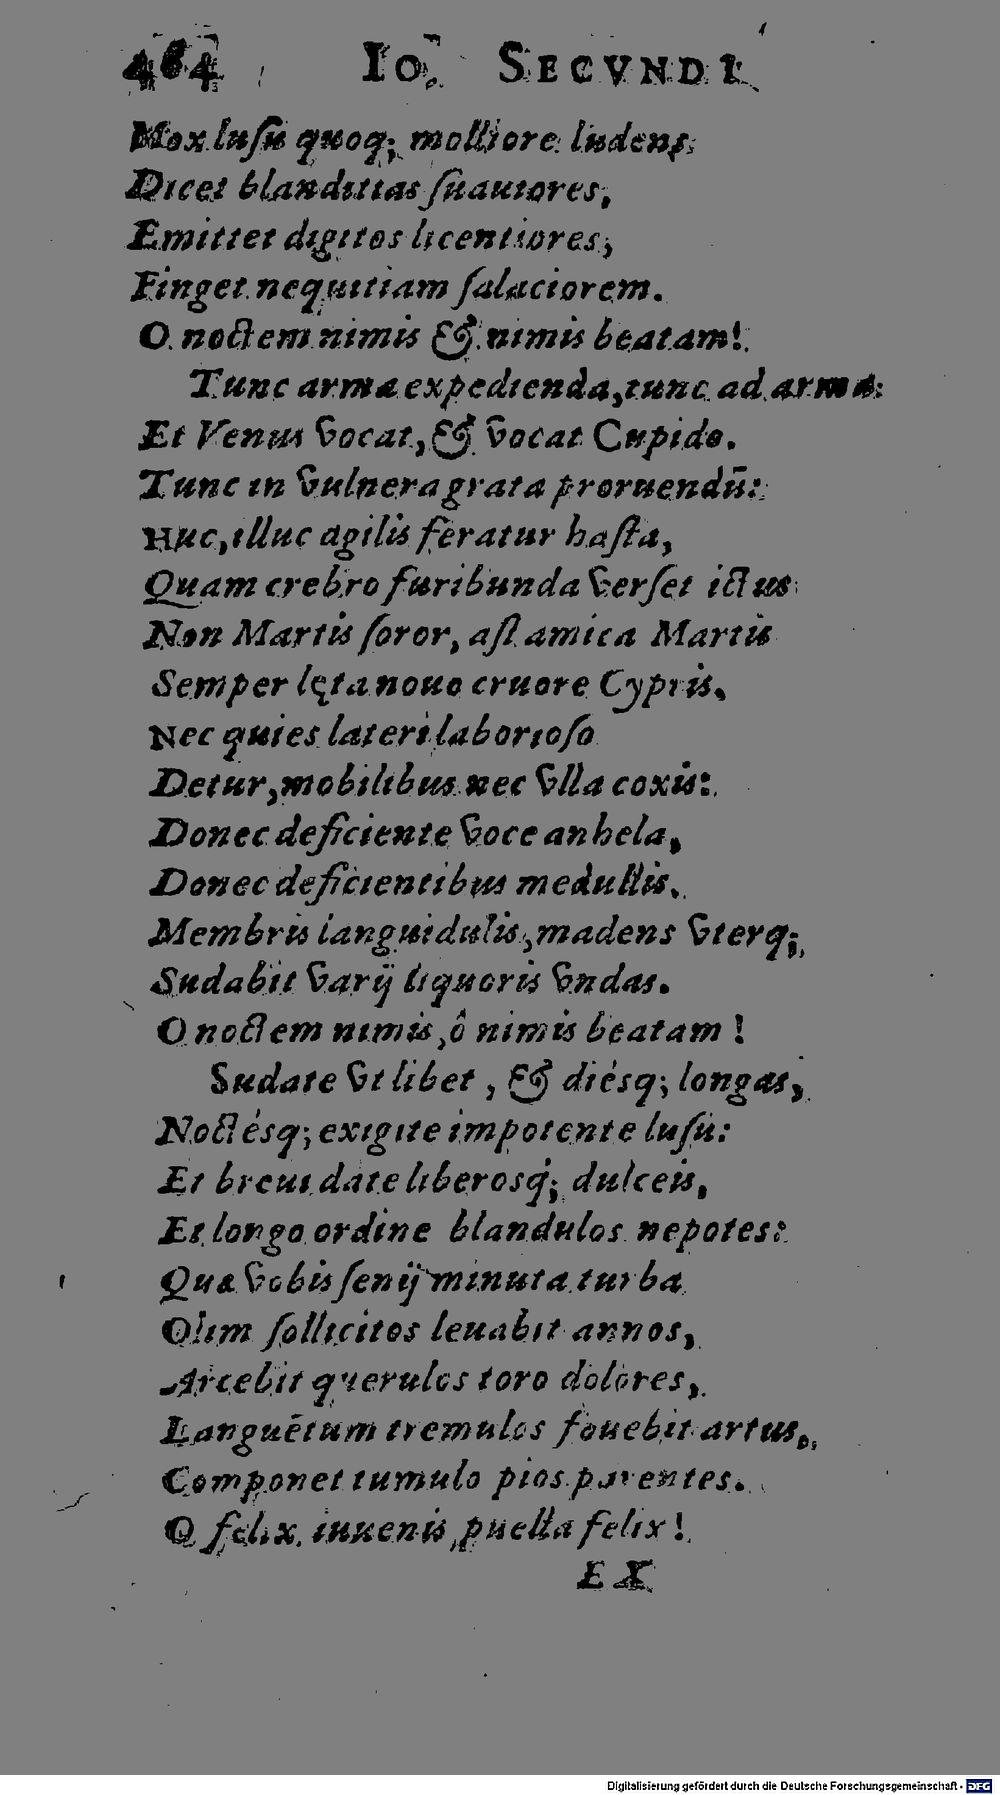 464 IO. SECVNDI
Mox lusu quoq; molliore ludens,
Dicet blanditias suauiores,
Emittet digitos licentiores,
Finget nequitiam salaciorem.
O noctem nimis & nimis beatam!
Tunc arma expedienda, tunc ad arma:
Et Venus vocat, & vocat Cupido.
Tunc in vulnera grata proruendū:
Huc, illuc agilis feratur hasta,
Quam crebro furibunda verset ictus
Non Martis soror, ast amica Martis
Semper lęta nouo cruore Cypris.
Nec quies lateri laborioso
Detur, mobilibus nec vlla coxis:
Donec deficiente voce anhela,
Donec deficientibus medullis.
Membris languidulis, madens vterq;,
Sudabit varij liquoris vndas.
O noctem nimis, ô nimis beatam!
Sudate vt libet, & diésq; longas,
Noctésq; exigite impotente lusu:
Et breui date liberosq; dulceis,
Et longo ordine blandulos nepotes:
Quæ vobis senij minuta turba
Olim sollicitos leuabit annos,
Arcebit querulos toro dolores,
Languētum tremulos fouebit artus,
Componet tumulo pios parentes.
O felix iuuenis, puella felix!
EX
Digitalisierung gefördert durch die Deutsche Forschungsgemeinschaft - DFG